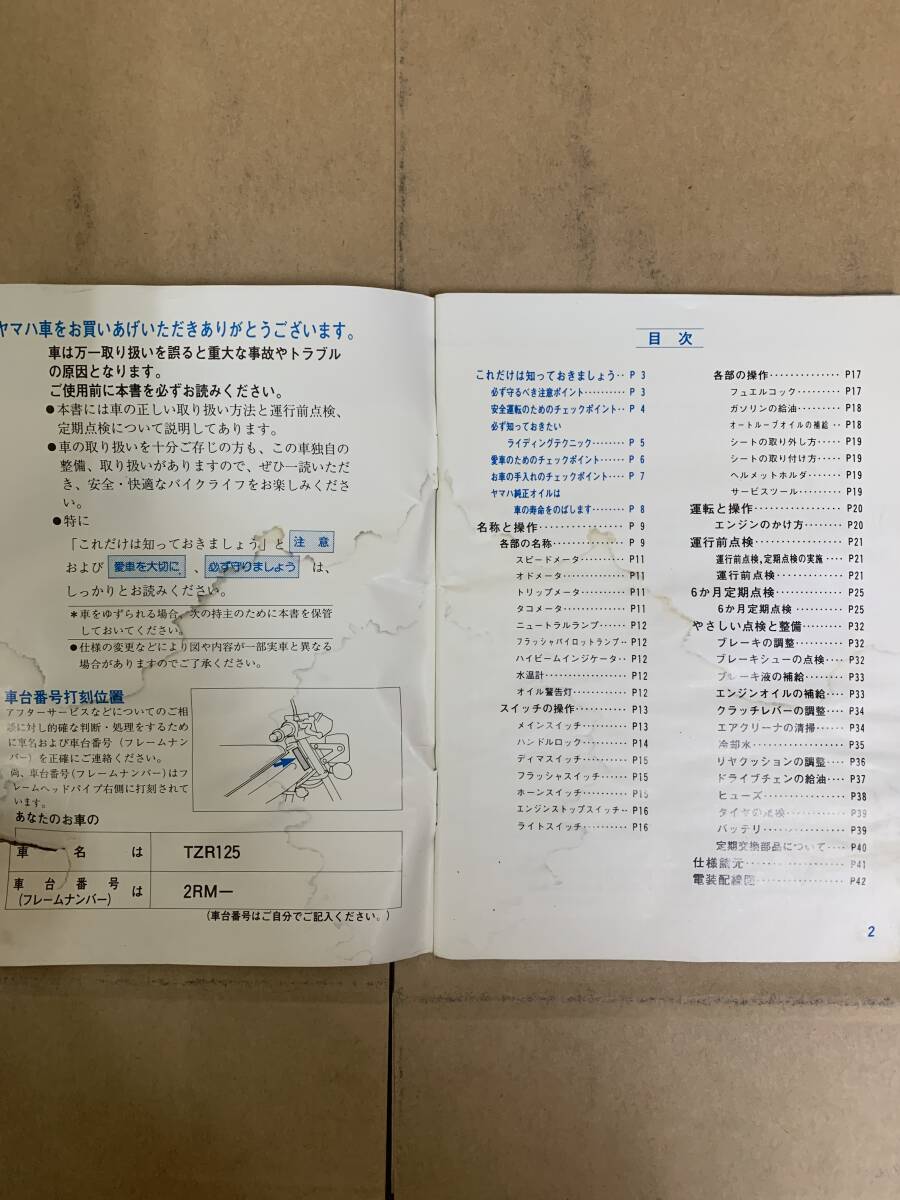 ヤマハ車をお買いあげいただきありがとうございます。
車は万一取り扱いを誤ると重大な事故やトラブル
の原因となります。
ご使用前に本書を必ずお読みください。
●本書には車の正しい取り扱い方法と運行前点検、
定期点検について説明してあります。
●車の取り扱いを十分ご存じの方も、この車独自の
整備、取り扱いがありますので、ぜひ一読いただ
き、安全・快適なバイクライフをお楽しみくださ
い。
●特に
「これだけは知っておきましょう」と 注 意
および 愛車を大切に 、 必ず守りましょう は、
しっかりとお読みください。
＊車をゆずられる場合、次の持主のために本書を保管
しておいてください。
●仕様の変更などにより図や内容が一部実車と異なる
場合がありますのでご了承ください。
車台番号打刻位置
アフターサービスなどについてのご相
談に対し的確な判断・処理をするため
に車名および車台番号（フレームナン
バー）を正確にご連絡ください。
尚、車台番号(フレームナンバー)はフ
レームヘッドパイプ右側に打刻されて
います。
あなたのお車の
車 名 は TZR125
車台番号(フレームナンバー)は 2RM―
（車台番号はご自分でご記入ください。）
目 次
これだけは知っておきましょう‥ P 3
必ず守るべき注意ポイント………… P 3
安全運転のためのチェックポイント‥ P 4
必ず知っておきたい
ライディングテクニック……… P 5
愛車のためのチェックポイント…… P 6
お車の手入れのチェックポイント…… P 7
ヤマハ純正オイルは
車の寿命をのばします……… P 8
名称と操作…………… P 9
各部の名称…………… P 9
スピードメータ……… P11
オドメータ…………… P11
トリップメータ……… P11
タコメータ…………… P11
ニュートラルランプ…… P12
フラッシャパイロットランプ‥ P12
ハイビームインジケータ‥ P12
水温計………………… P12
オイル警告灯………… P12
スイッチの操作………… P13
メインスイッチ……… P13
ハンドルロック……… P14
ディマスイッチ……… P15
フラッシャスイッチ…… P15
ホーンスイッチ……… P15
エンジンストップスイッチ‥ P16
ライトスイッチ……… P16
各部の操作…………… P17
フュエルコック……… P17
ガソリンの給油……… P18
オートループオイルの補給‥ P18
シートの取り外し方…… P19
シートの取り付け方…… P19
ヘルメットホルダ…… P19
サービスツール……… P19
運転と操作……………… P20
エンジンのかけ方…… P20
運行前点検……………… P21
運行前点検、定期点検の実施…… P21
運行前点検…………… P21
6か月定期点検………… P25
6か月定期点検……… P25
やさしい点検と整備…… P32
ブレーキの調整……… P32
ブレーキシューの点検‥ P32
ブレーキ液の補給…… P33
エンジンオイルの補給‥ P33
クラッチレバーの調整‥ P34
エアクリーナの清掃…… P34
冷却水………………… P35
リヤクッションの調整‥ P36
ドライブチェンの給油‥ P37
ヒューズ……………… P38
タイヤの点検………… P39
バッテリ……………… P39
定期交換部品について‥ P40
仕様諸元………………… P41
電装配線図……………… P42
2